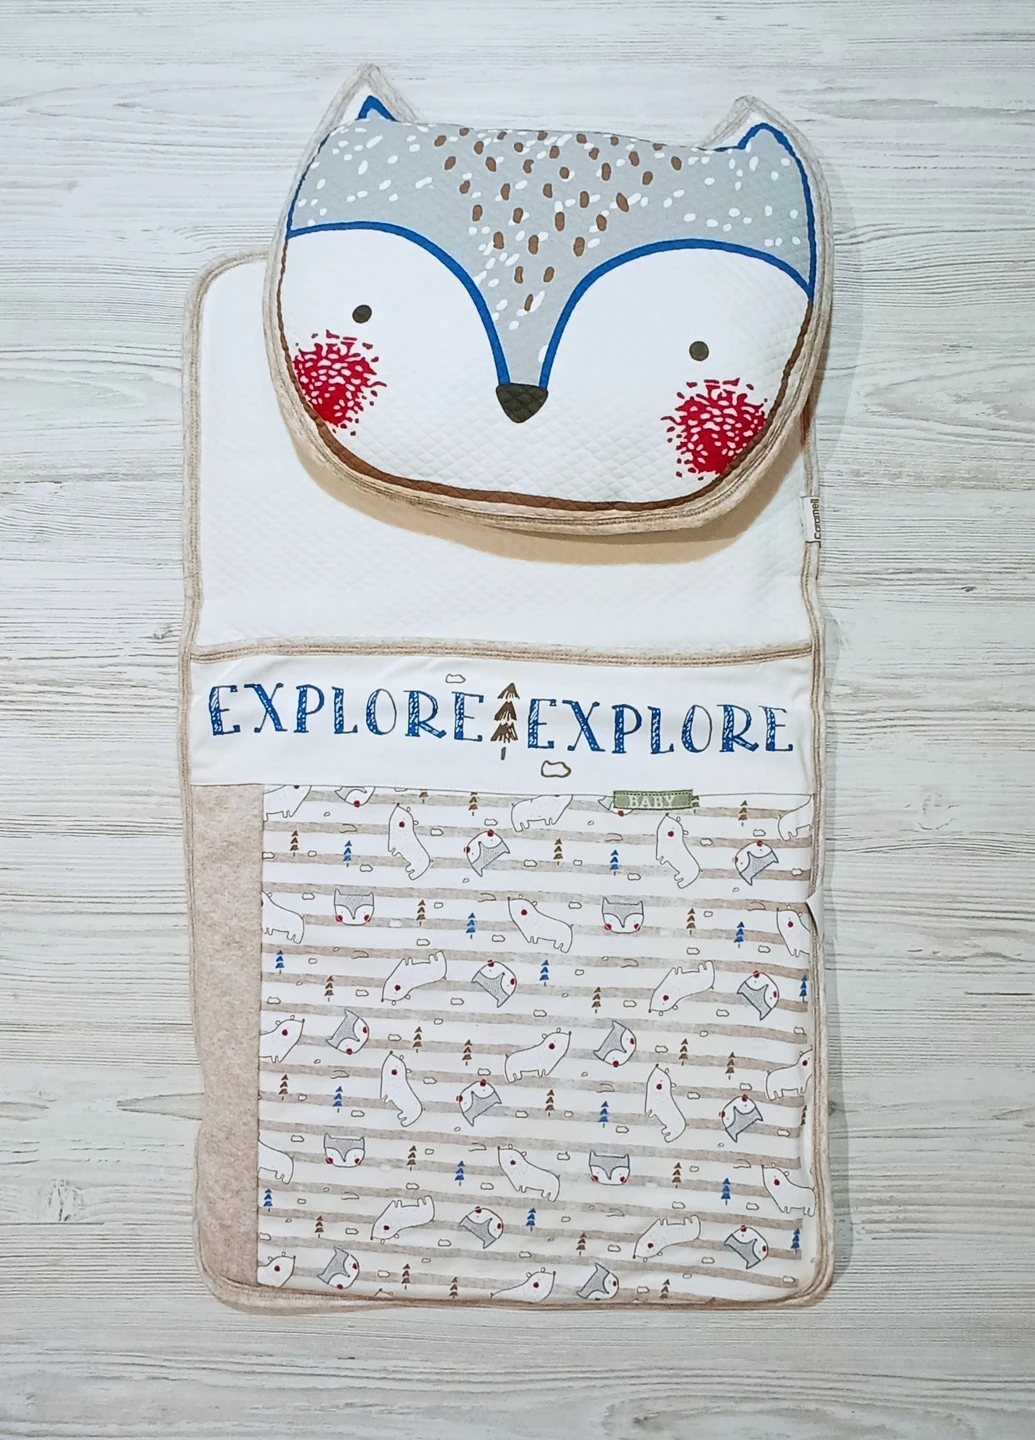 caramell
EXPLORE EXPLORE
BABY